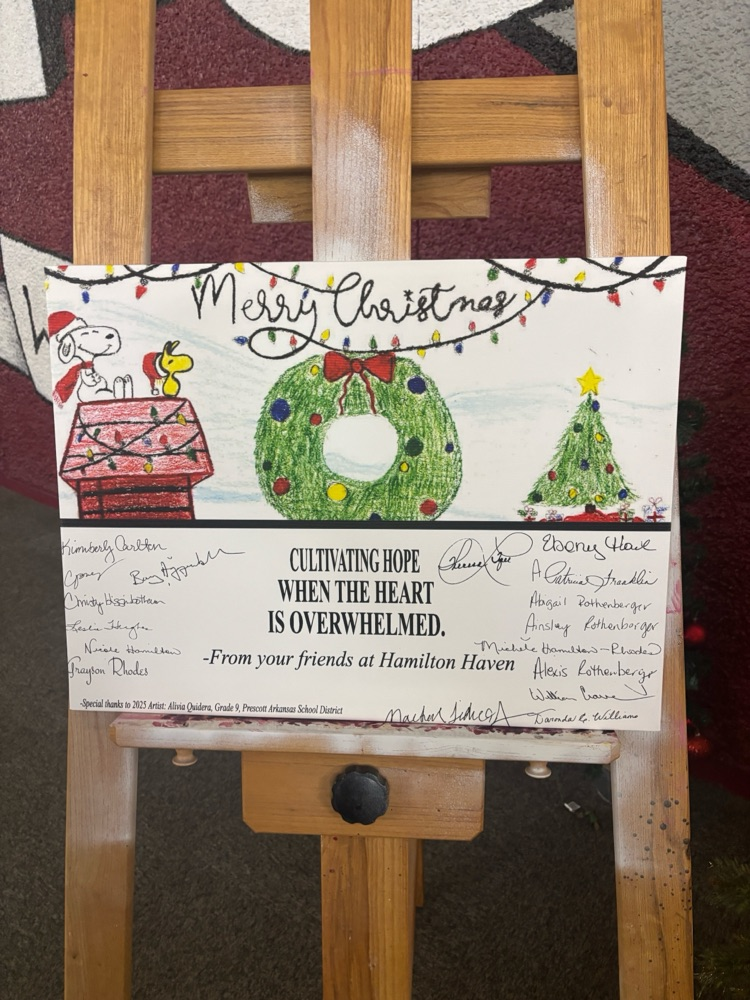 Merry Christmas
CULTIVATING HOPE
WHEN THE HEART
IS OVERWHELMED.
-From your friends at Hamilton Haven
Kimberly Carlton
Christy Higginbotham
Leslie Hughes
Nicole Hamilton
Grayson Rhodes
Ebony
Patricia Franklin
Abigail Rothenberger
Ainsley Rothenberger
Michele Hamilton-Rhodes
Alexis Rothenberger
William
Williams
-Special thanks to 2025 Artist: Alivia Quidera, Grade 9, Prescott Arkansas School District